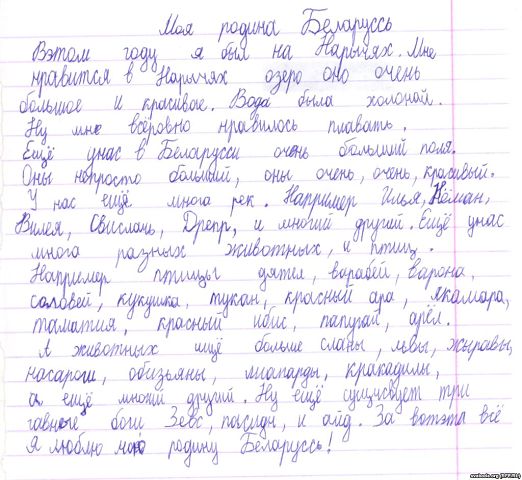 Моя родина Беларуссь
Вэтом году я был на Нарычях. Мне
нравится в Нарычях озеро оно очень
большое и красивае. Вода была холоной.
Ну мне всёровно нравилось плавать.
Ещё унас в Беларусси очень большии поля.
Оны непросто большый, оны очень, очень, красивый.
У нас ещё многа рек. Например Илья, Нёман,
Вилея, Свислачь, Днепр, и многий другий. Ещё унас
многа разных животных, и птиц.
Например птицы дятел, варабей, варона,
саловей, кукушка, тукан, красный ара, якамара,
таматия, красный ибис, папугай, арёл.
А животных ищё больше сланы, львы, жырафы,
насароги, обизьяны, лиапарды, кракадилы,
а ещё многий другий. Ну ещё сущиствует три
гавные боги Зевс, пасидн, и аид. За вотэта всё
Я люблю маю родину Беларуссь!
svaboda.org (RFE/RL)